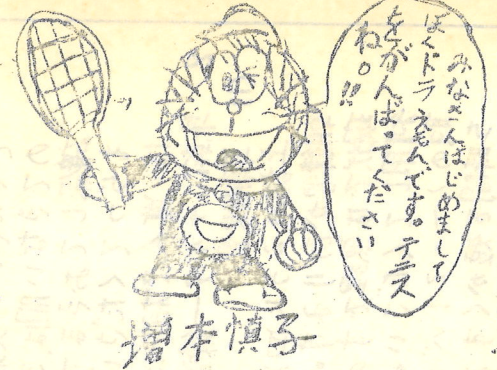 みなさんはじめまして
ぼくドラえもんです。テニス
をがんばってください
ね。!!
増本慎子